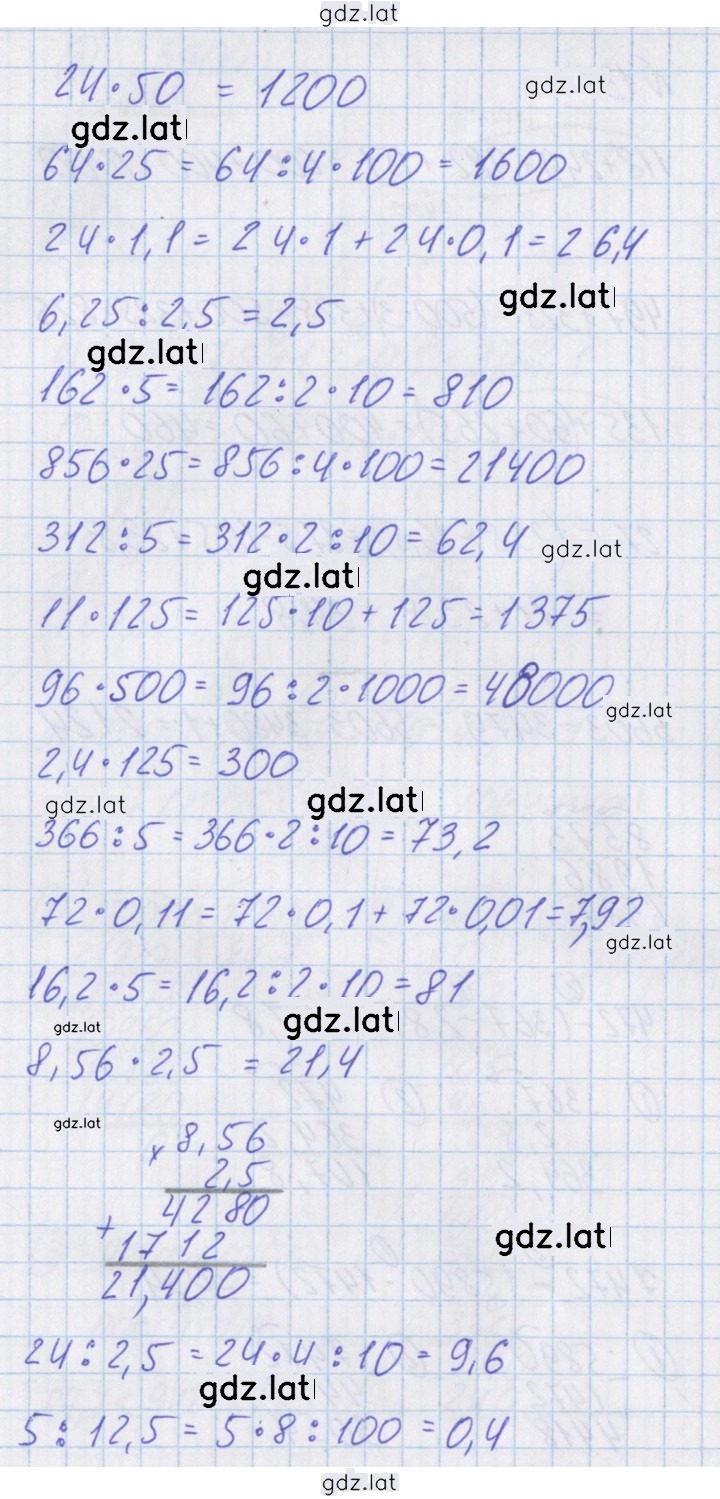 gdz.lat
24·50 = 1200
gdz.lat
gdz.lat
64·25 = 64:4·100 = 1600
24·1,1 = 24·1+24·0,1 = 26,4
gdz.lat
6,25:2,5 = 2,5
gdz.lat
162·5 = 162:2·10 = 810
856·25 = 856:4·100 = 21400
312:5 = 312·2:10 = 62,4
gdz.lat
gdz.lat
11·125 = 125·10+125 = 1375
96·500 = 96:2·1000 = 48000
gdz.lat
2,4·125 = 300
gdz.lat
gdz.lat
366:5 = 366·2:10 = 73,2
72·0,11 = 72·0,1+72·0,01 = 7,92
gdz.lat
16,2·5 = 16,2:2·10 = 81
gdz.lat
gdz.lat
8,56·2,5 = 21,4
gdz.lat
× 8,56
2,5
4280
+ 1712
gdz.lat
21,400
24:2,5 = 24·4:10 = 9,6
gdz.lat
5:12,5 = 5·8:100 = 0,4
gdz.lat